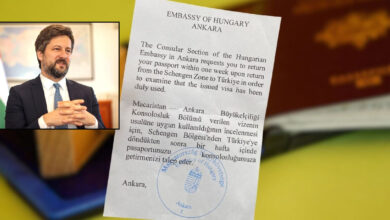 EMBASSY OF HUNGARY
ANKARA
The Consular Section of the Hungarian
Embassy in Ankara requests you to return
your passport within one week upon return
from the Schengen Zone to Türkiye in order
to examine that the issued visa has been
duly used.
Macaristan Ankara Büyükelçiliği
Konsolosluk Bölümü verilen vizenin
usulüne uygun kullanıldığının incelenmesi
için, Schengen Bölgesi'nden Türkiye'ye
döndükten sonra bir hafta içinde
pasaportunuzu konsolosluğumuza
getirmenizi talep eder.
Ankara,